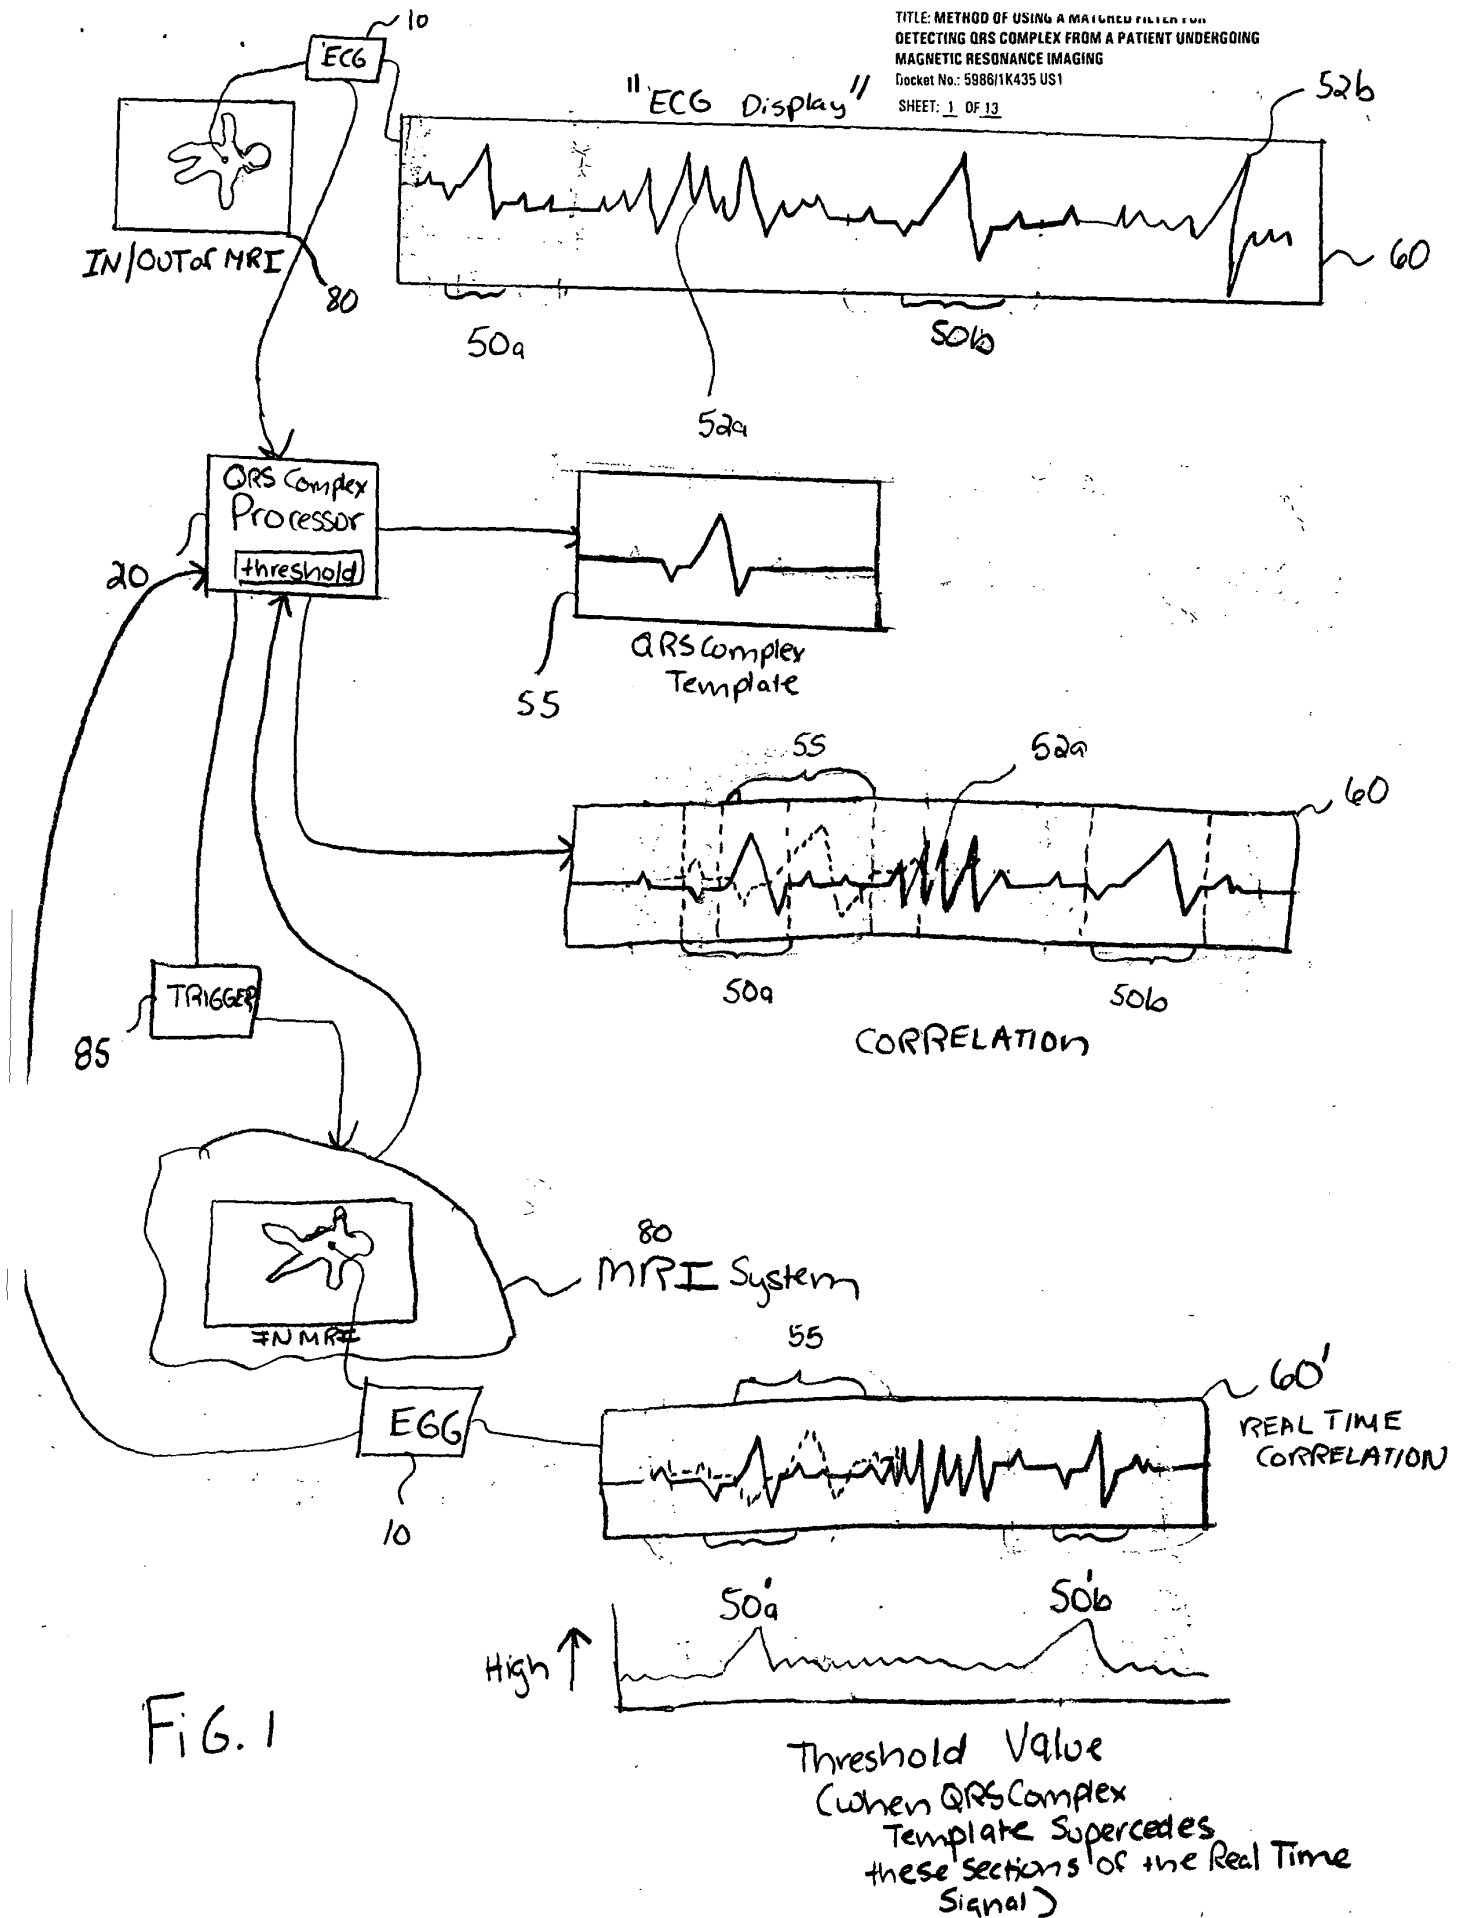 10
TITLE: METHOD OF USING A MATCHED FILTER FOR
DETECTING QRS COMPLEX FROM A PATIENT UNDERGOING
MAGNETIC RESONANCE IMAGING
Docket No.: 5986/1K435 US1
SHEET: 1 OF 13
ECG
"ECG Display"
52b
IN/OUT of MRI
80
60
50a
50b
52a
QRS Complex
Processor
threshold
20
QRS Complex
Template
55
55
52a
60
50a
50b
CORRELATION
TRIGGER
85
80
MRI System
IN MRI
55
60'
REAL TIME
CORRELATION
EGG
10
50'a
50'b
High
FIG. 1
Threshold Value
(when QRS Complex
Template Supercedes
these sections of the Real Time
Signal)